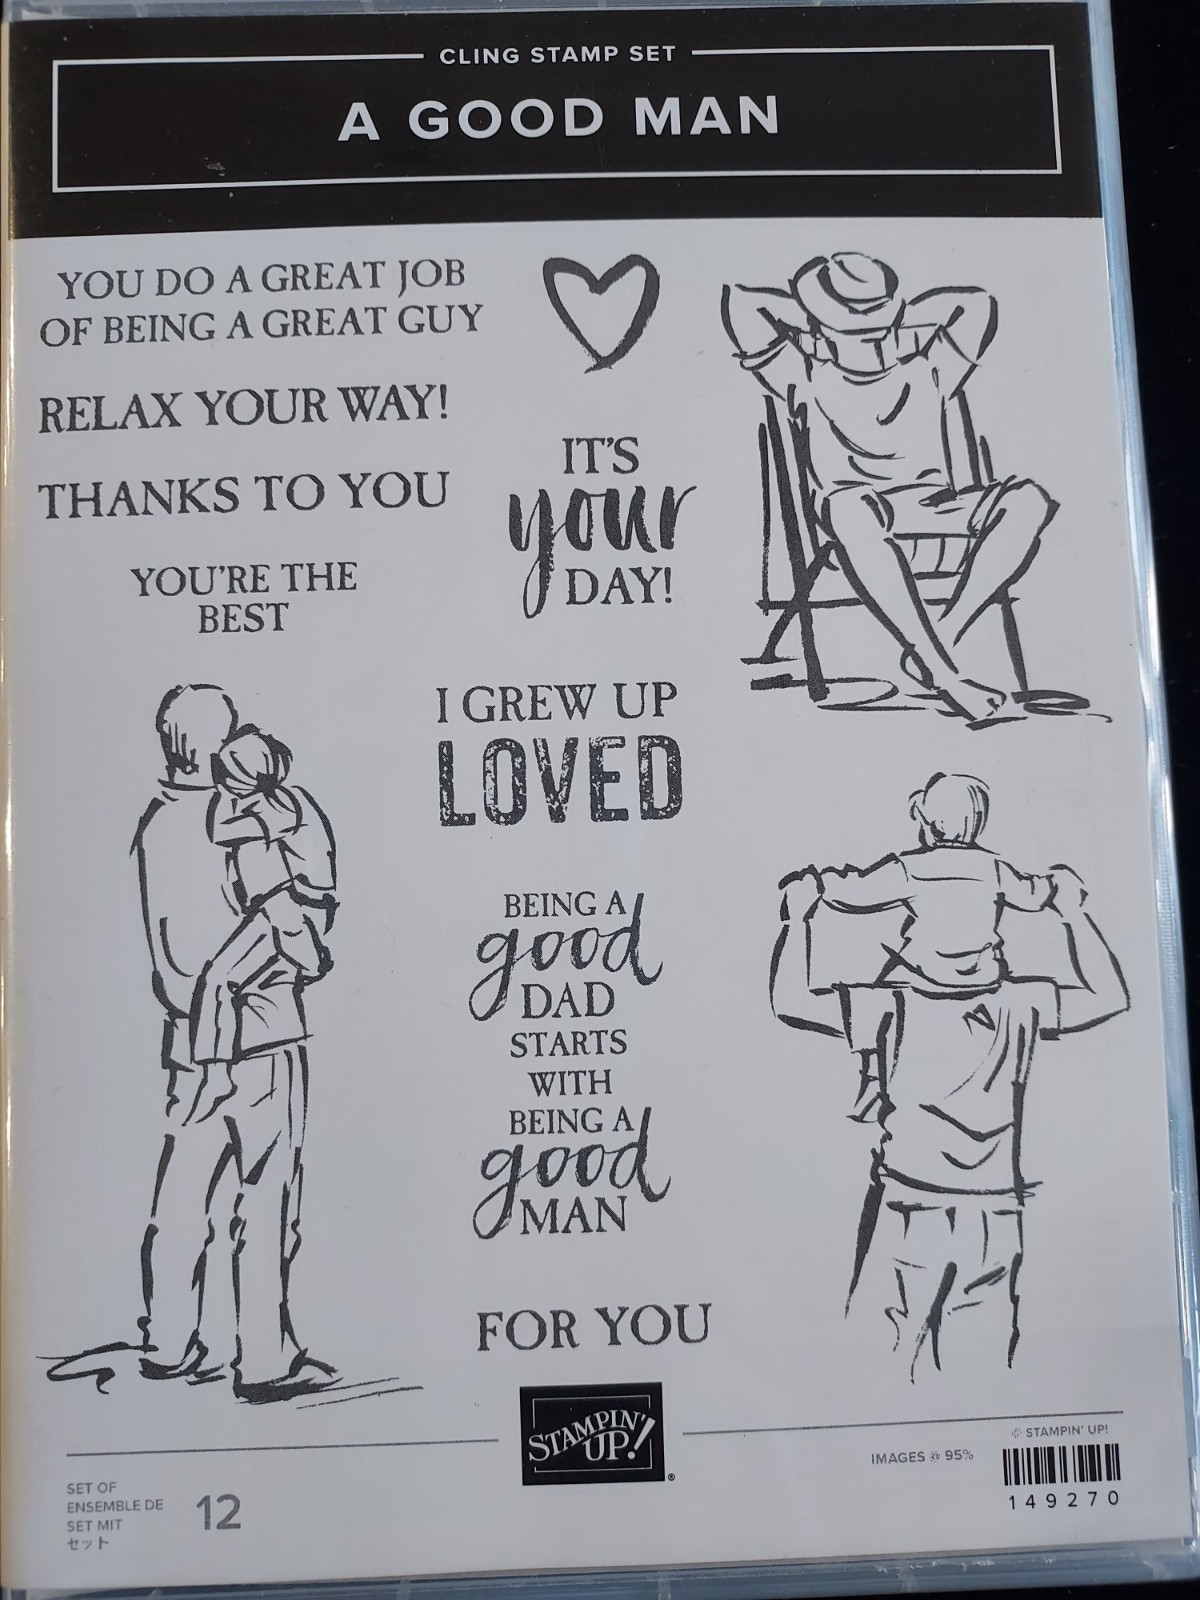 CLING STAMP SET
A GOOD MAN
YOU DO A GREAT JOB
OF BEING A GREAT GUY
RELAX YOUR WAY!
THANKS TO YOU
YOU'RE THE
BEST
IT'S
your
DAY!
I GREW UP
LOVED
BEING A
good
DAD
STARTS
WITH
BEING A
good
MAN
FOR YOU
STAMPIN'
UP!
®
SET OF
ENSEMBLE DE
SET MIT
セット
12
IMAGES @ 95%
© STAMPIN' UP!
149270